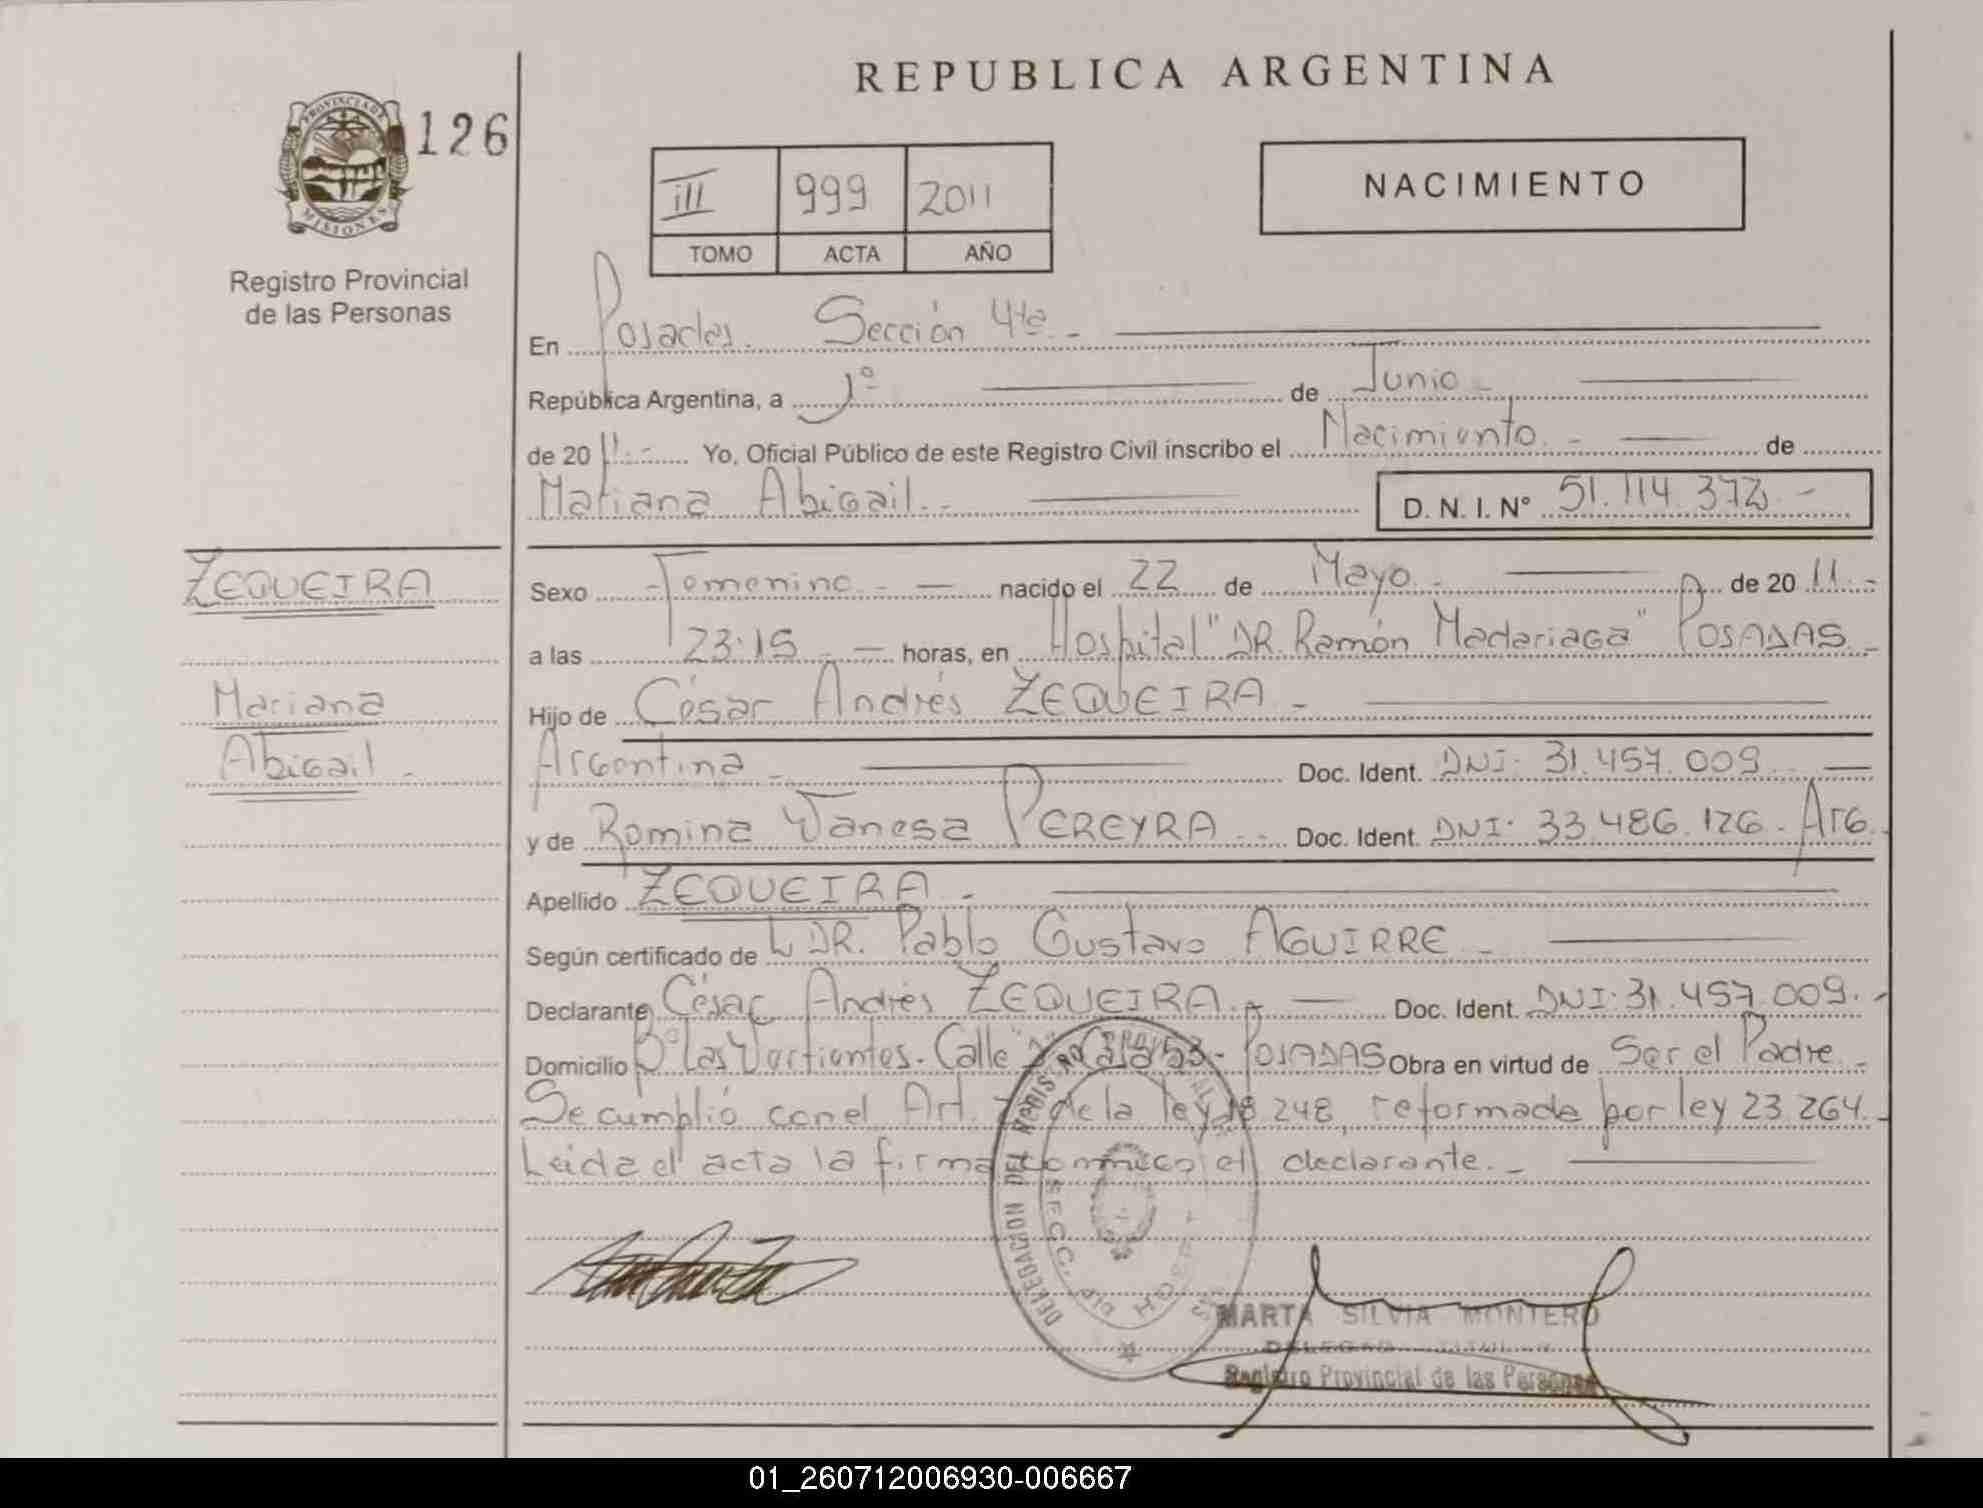 REPUBLICA ARGENTINA
PROVINCIA DE
MISIONES
126
Registro Provincial
de las Personas
III 999 2011
TOMO ACTA AÑO
NACIMIENTO
En Posadas. Sección 4ta.-
República Argentina, a 1º de Junio.-
de 2011.- Yo, Oficial Público de este Registro Civil inscribo el Nacimiento.- de
Mariana Abigail.- D. N. I. Nº 51.114.372.-
ZEQUEIRA
Mariana
Abigail.-
Sexo Femenino.- nacido el 22 de Mayo.- de 2011.-
a las 23:15.- horas, en Hospital "DR. Ramón Madariaga" POSADAS.-
Hijo de César Andrés ZEQUEIRA.-
Argentina.- Doc. Ident. DNI: 31.457.009.-
y de Romina Vanesa PEREYRA.- Doc. Ident. DNI: 33.486.126.- Arg.
Apellido ZEQUEIRA.-
Según certificado de DR. Pablo Gustavo AGUIRRE.-
Declarante César Andrés ZEQUEIRA.- Doc. Ident. DNI: 31.457.009.-
Domicilio Bº Las Vertientes. Calle Casa 53- POSADAS Obra en virtud de Ser el Padre.-
Se cumplió con el Art. de la ley 18.248, reformada por ley 23.264.-
Leida el acta la firma conmigo el declarante.-
DELEGACION DEL REGISTRO PROVINCIAL
MARTA SILVIA MONTERO
Registro Provincial de las Personas
01_260712006930-006667